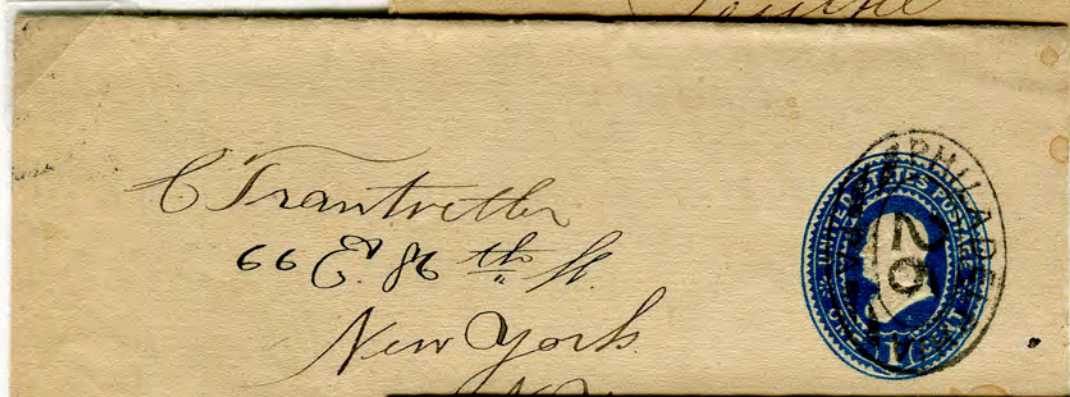 C Trantvetter
66 E. 86 th St.
New York
N.Y.
UNITED STATES POSTAGE
ONE CENT
1
PHILADELPHIA
29